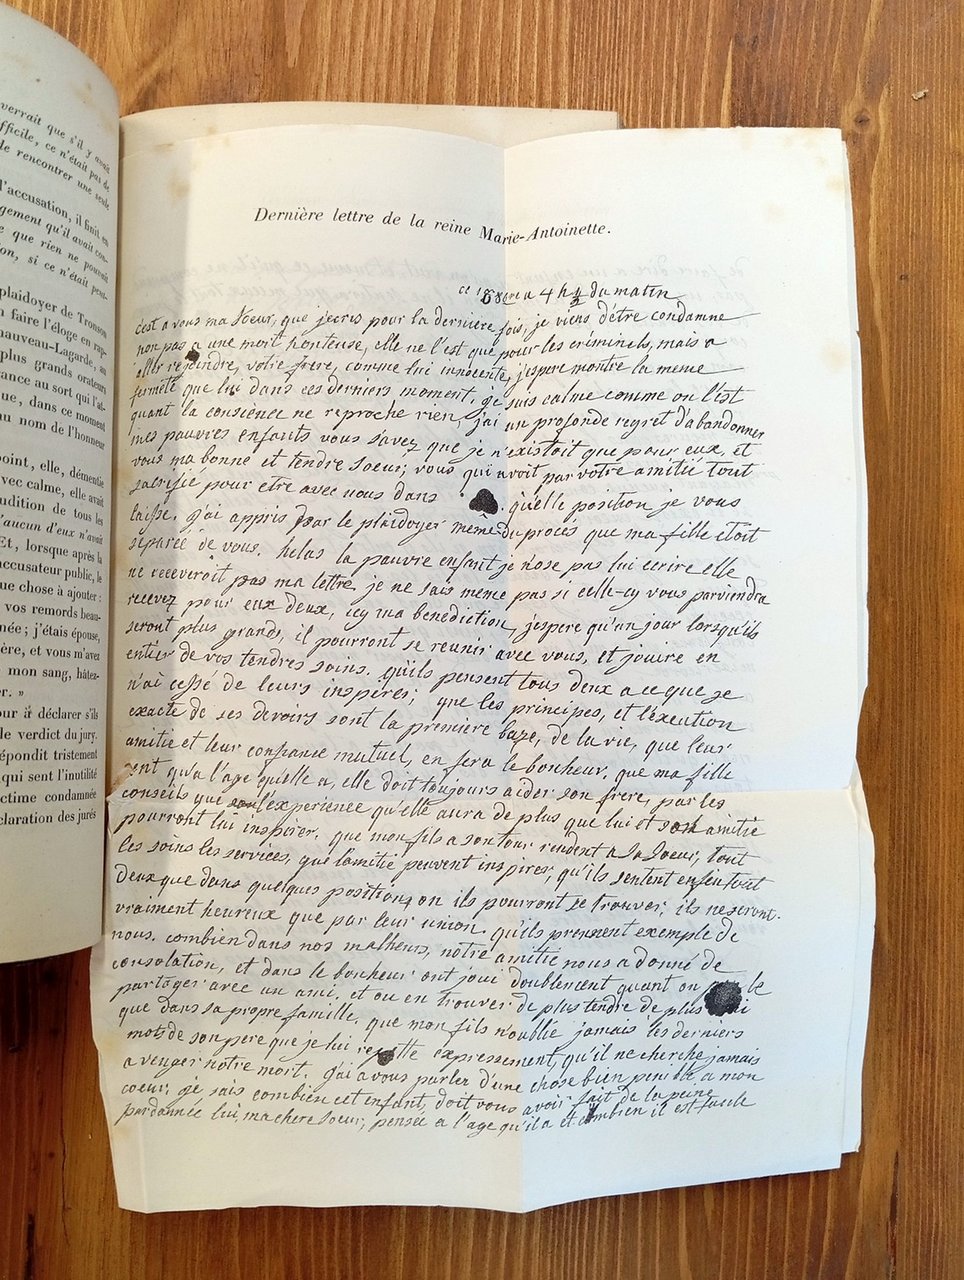 verrait que s'il y avait
fficile, ce n'était pas de
le rencontrer une seule
l'accusation, il finit en
gement qu'il avait con-
e que rien ne pouvait
on, si ce n'était peut-
plaidoyer de Tronson
n faire l'éloge en rap-
hauveau-Lagarde, au
plus grands orateurs
ance au sort qui l'at-
ue, dans ce moment
au nom de l'honneur
point, elle, démentie
vec calme, elle avait
udition de tous les
'aucun d'eux n'avait
Et, lorsque après la
accusateur public, le
que chose à ajouter :
vos remords beau-
née ; j'étais épouse,
ère, et vous m'avez
mon sang, hâtez-
r. »
our à déclarer s'ils
le verdict du jury.
épondit tristement
qui sent l'inutilité
ctime condamnée
claration des jurés
Dernière lettre de la reine Marie-Antoinette.
ce 16 8bre a 4 h ½ du matin
c'est a vous ma Soeur, que j'ecris pour la derniere fois, je viens d'être condamne
non pas a une mort honteuse, elle ne l'est que pour les criminels, mais a
aller rejoindre, votre frere, comme lui innocente, j'espere montre la meme
fermeté que lui dans ces derniers moment, je suis calme comme on l'est
quant la conscience ne reproche rien, j'ai un profonde regret d'abandonner
mes pauvres enfants vous savez que je n'existoit que pour eux, et
vous ma bonne et tendre soeur; vous qui avoit par votre amitié tout
sacrifié pour etre avec nous dans quelle position je vous
laisse. j'ai appris par le plaidoyer même du procès que ma fille etoit
separée de vous. helas la pauvre enfant je n'ose pas lui ecrire elle
ne receveroit pas ma lettre je ne sais même pas si celle-cy vous parviendra
recevez pour eux deux, icy ma benediction, j'espere qu'un jour lorsqu'ils
seront plus grands, il pourront se reunir avec vous, et jouire en
entier de vos tendres soins. qu'ils pensent tous deux a ce que je
n'ai cessé de leurs inspirés; que les principes, et l'éxecution
exacte de ses devoirs sont la premiere baze, de la vie, que leur
amitié et leur confianse mutuel, en fera le bonheur. que ma fille
sent qu'a l'age qu'elle a, elle doit toujours aider son frere, par les
conseils qui l'experience qu'elle aura de plus que lui et son amitié
pourront lui inspirer. que mon fils a son tour rendent a sa soeur, tout
les soins les services, que l'amitié peuvent inspirer; qu'ils sentent enfin tout
deux que dans quelques positions, ou ils pourront se trouver; ils ne seront.
vraiment heureux que par leur union. qu'ils prennent exemple de
nous, combien dans nos malheurs, notre amitié nous a donné de
consolation, et dans le bonheur ont joui doublement quant on le
partager avec un ami, et ou en trouver de plus tendre de plus
que dans sa propre famille. que mon fils n'oublie jamais les derniers
mots de son pere que je lui repette expressement, qu'il ne cherche jamais
a venger notre mort. j'ai a vous parler d'une chose bien penible, a mon
coeur; je sais combien cet enfant, doit vous avoir fait de la peine
pardonnée lui, ma chere soeur, pensée a l'age qu'il a et combien il est facile